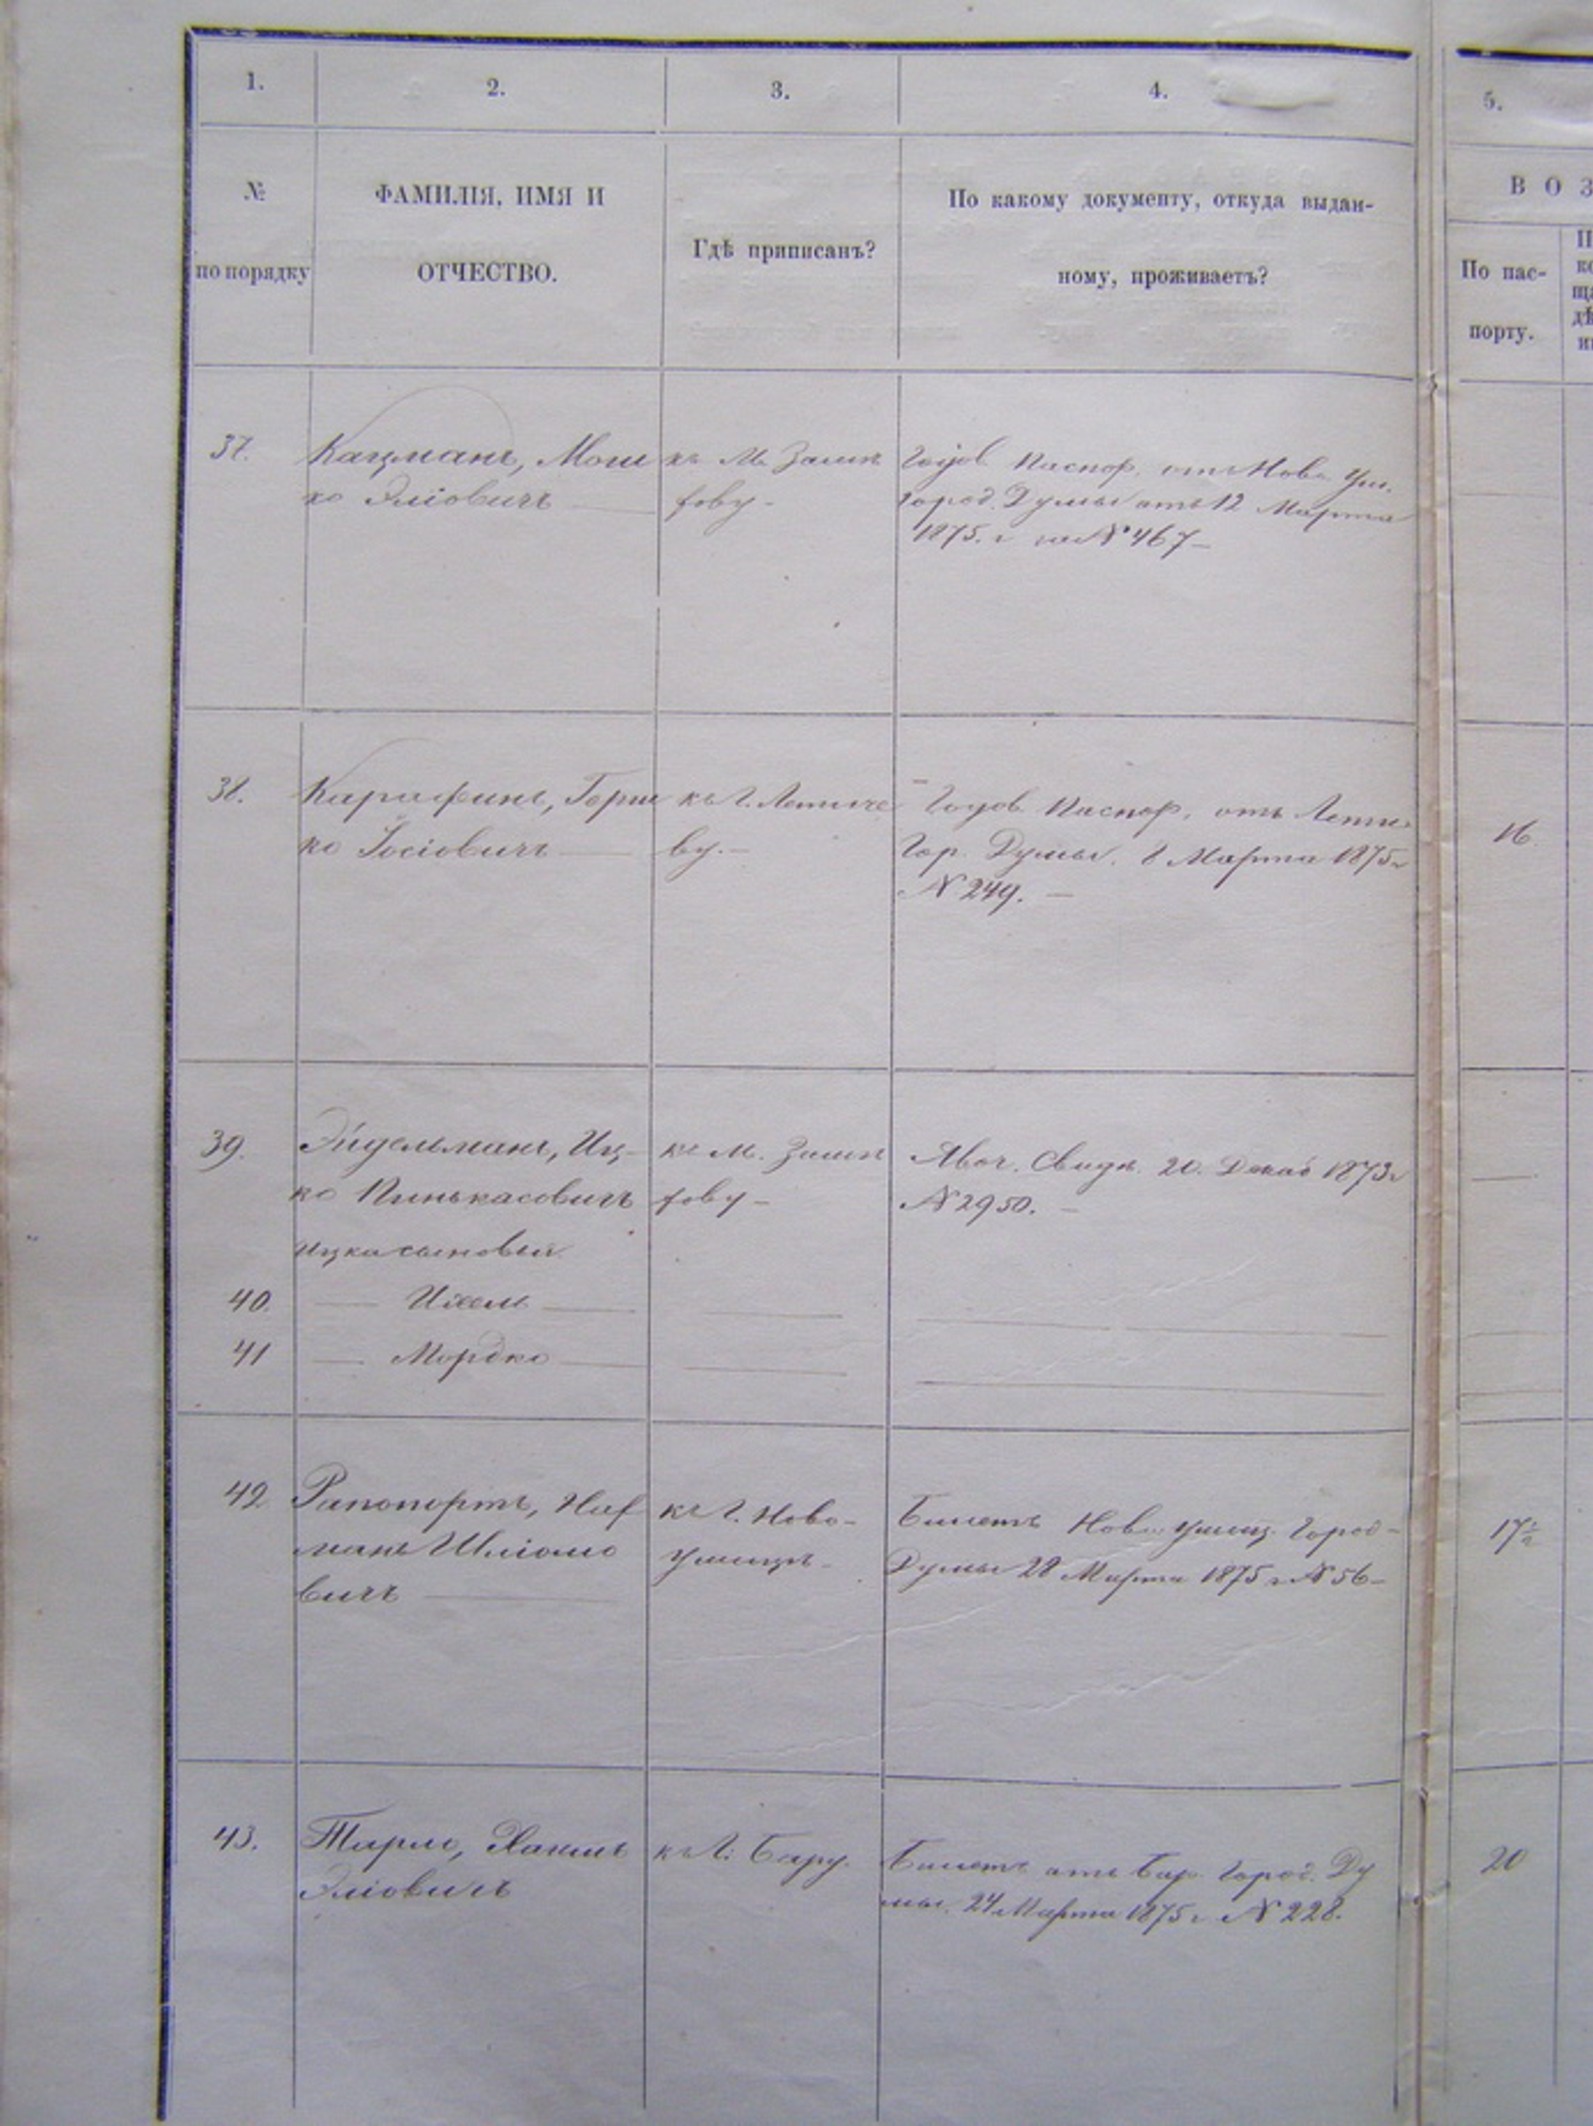 1.
2.
3.
4.
5.
№
по порядку
ФАМИЛІЯ, ИМЯ И
ОТЧЕСТВО.
Гдѣ приписанъ?
По какому документу, откуда выдан-
ному, проживаетъ?
В О З
По пас-
порту.
37.
Кацманъ, Мош
ко Эліовичъ
къ М.
Годов. Паспор. отъ Ново Уш.
Город. Думы отъ 12 Марта
1875. г за № 467
38.
Карафинъ, Герш
ко Іосіовичъ
къ Г. Летиче
ву.
Годов. Паспор. отъ Лети.
Гор. Думы. 8 Марта 1875 г
№ 249.
16
39.
Эйдельманъ, Иц-
ко Пинькасовичъ
Ицка сыновья
къ М.
Явоч. Свидѣ. 20. Декаб 1873 г
№ 2950.
40.
41
Мордко
42
Рапопортъ, Наф
манъ Шліомо
вичъ
къ Г. Ново-
ушицѣ
Билетъ Ново ушиц. Город-
Думы 28 Марта 1875 г № 56
17 ½
43.
Тарло, Хаимъ
Эліовичъ
къ Г. Бару.
Билетъ отъ Бар. Город. Ду
мы. 24 Марта 1875 г. № 228.
20